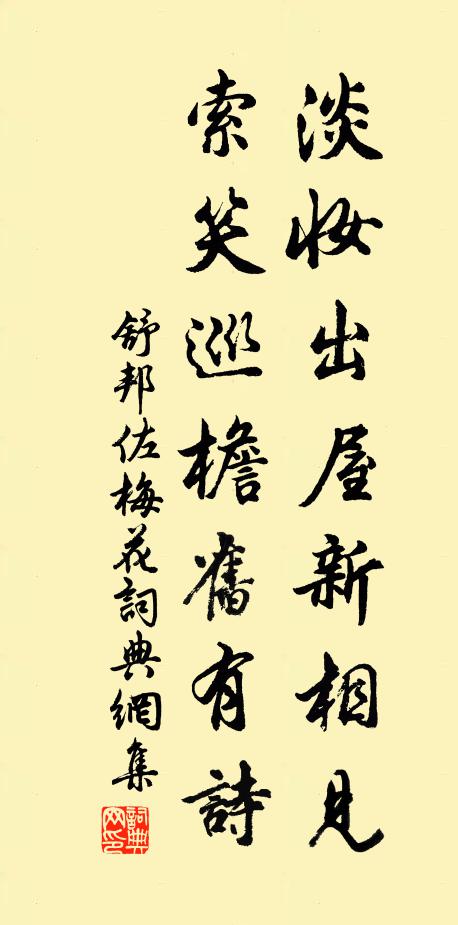 淡妆出屋新相見
索笑巡檐舊有詩
舒邦佐梅花詞典網集
詞典网印